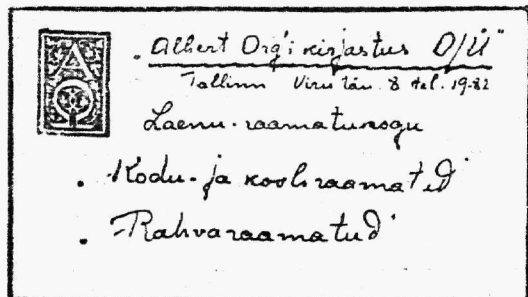 "Albert Org'i kirjastus O/Ü"
Tallinn Viru tän. 8 tel. 19-82
Laenu-raamatukogu
. "Kodu- ja kooliraamatud"
. "Rahvaraamatud"